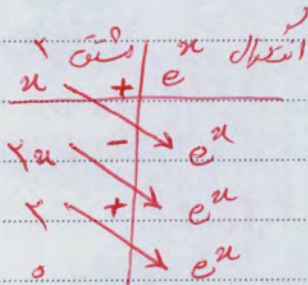 مشتق انتگرال
x² + eˣ
۲x - eˣ
۲ + eˣ
۰ eˣ